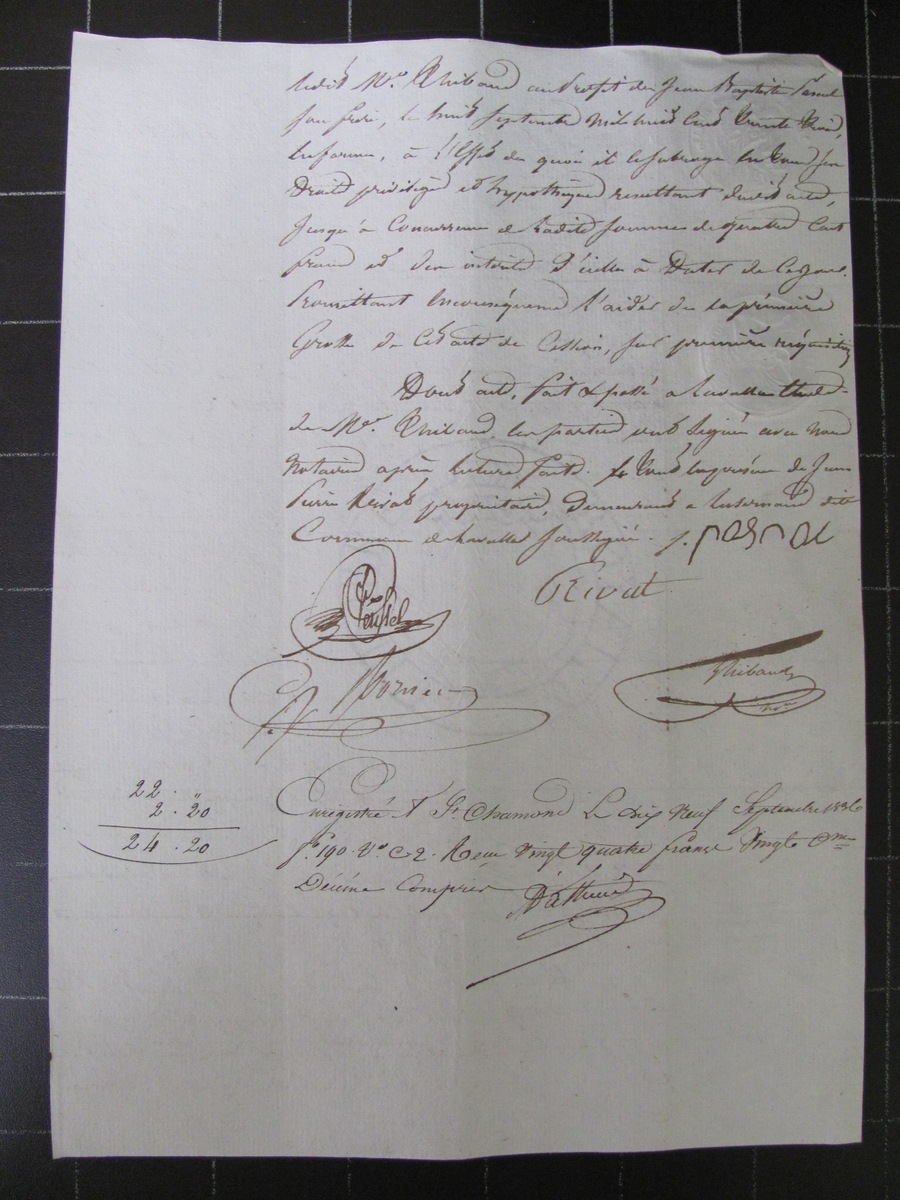 ledit Me. Thibaud au profit de Jean Baptiste
son frère, le huit Septembre mil huit cent trente trois,
en forme, à l'effet de quoi il le subroge en tous ses
Droits privilèges et hypothèques résultant dudit acte,
jusqu'à Concurrence de ladite somme de quatre Cent
francs et des intérêts d'icelle à Dater de ce jour.
Promettant en conséquence l'aider de la première
Grosse de cet acte de Cession, sur première réquisition
Dont acte, fait & passé a Lavalla
de Me. Thibaud les parties ont signé avec nous
Notaires après lecture faite. le tout en présence de Jean
Pierre Rivat propriétaire, demeurant a Luzernaud dite
Commune de Lavalla soussigné. J.
Rivat
Thibaud
nre
22 . "
2 . 20
24 . 20
Enregistré à St. Chamond Le dix neuf Septembre 1836
fo. 190. Vo. C 2. Reçu vingt quatre francs vingt Cmes
Décime Compris